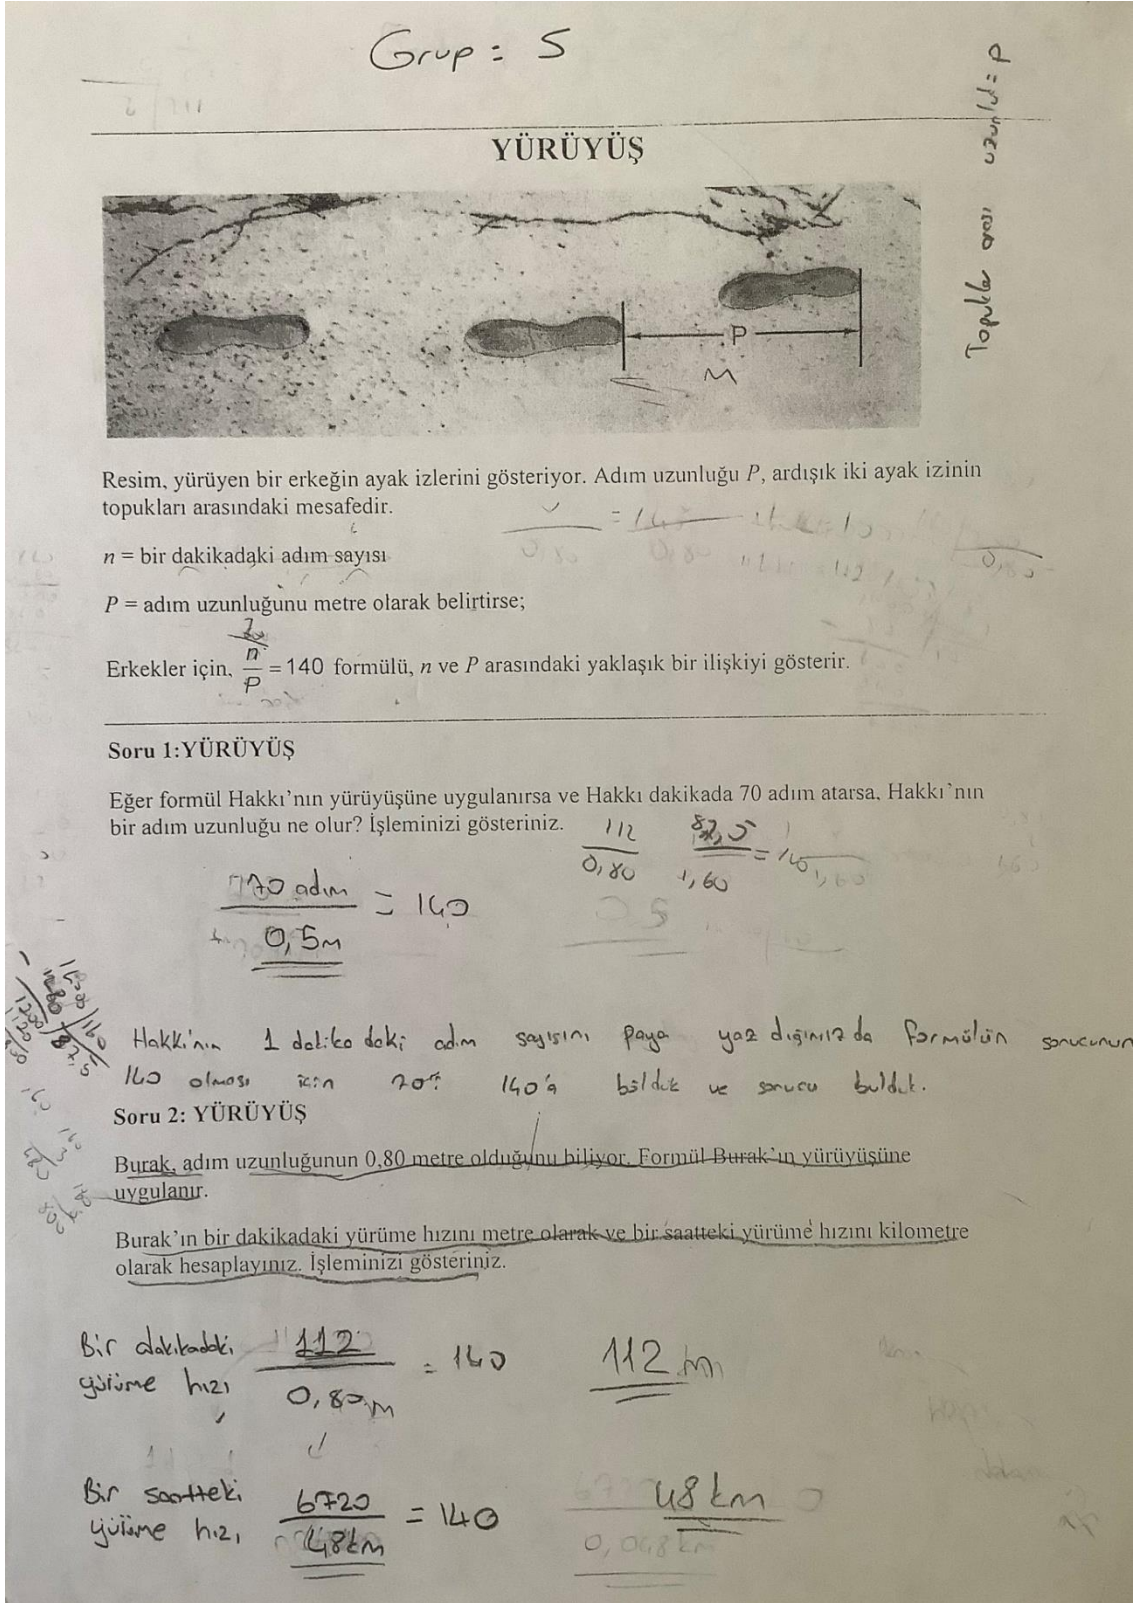 Grup = 5
Topuklar arası uzunluk = P
YÜRÜYÜŞ
P
M
Resim, yürüyen bir erkeğin ayak izlerini gösteriyor. Adım uzunluğu P, ardışık iki ayak izinin
topukları arasındaki mesafedir.
n = bir dakikadaki adım sayısı
P = adım uzunluğunu metre olarak belirtirse;
70
Erkekler için, n/P = 140 formülü, n ve P arasındaki yaklaşık bir ilişkiyi gösterir.
Soru 1:YÜRÜYÜŞ
Eğer formül Hakkı'nın yürüyüşüne uygulanırsa ve Hakkı dakikada 70 adım atarsa, Hakkı'nın
bir adım uzunluğu ne olur? İşleminizi gösteriniz.
112
0,80
1,60
70 adım
= 140
0,5m
Hakkı'nın 1 dakikadaki adım sayısını paya yazdığımızda formülün sonucunun
140 olması için 70'i 140'a böldük ve sonucu bulduk.
Soru 2: YÜRÜYÜŞ
Burak, adım uzunluğunun 0,80 metre olduğunu biliyor. Formül Burak'ın yürüyüşüne
uygulanır.
Burak'ın bir dakikadaki yürüme hızını metre olarak ve bir saatteki yürüme hızını kilometre
olarak hesaplayınız. İşleminizi gösteriniz.
Bir dakikadaki
yürüme hızı
112
0,80m
= 140
112 m
Bir saatteki
yürüme hızı
6720
48km
= 140
48 km
0,048 km